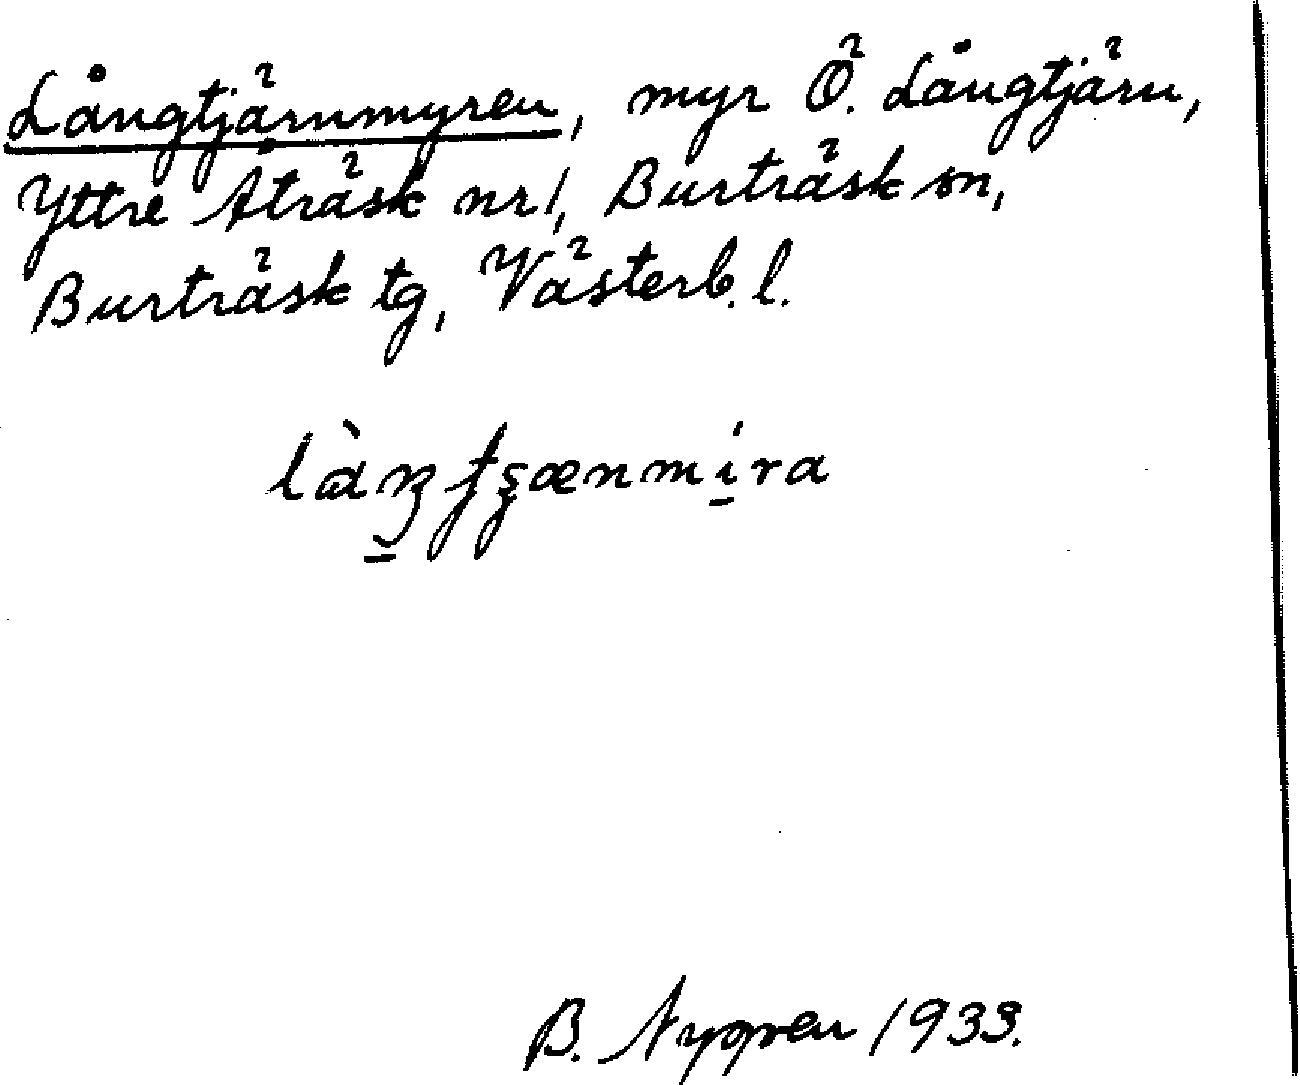 Långtjärnmyren, myr Ö. Långtjärn,
Yttre Åträsk nr 1, Burträsk sn,
Burträsk tg, Västerb. l.
B. Nygren 1933.